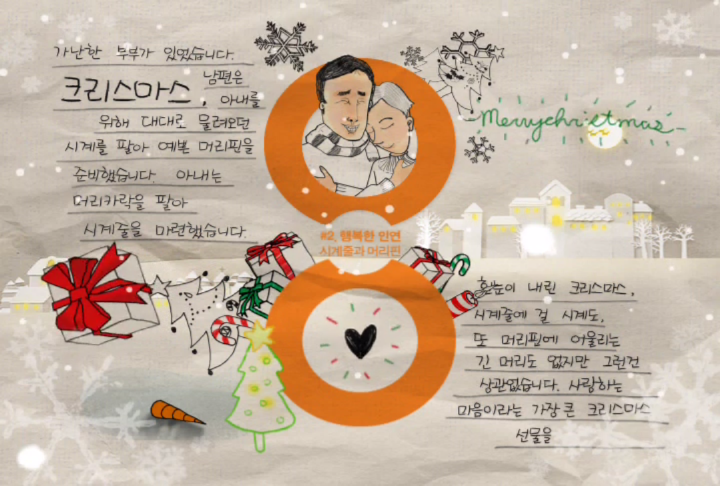 가난한 부부가 있었습니다.
크리스마스, 남편은
아내를
위해 대대로 물려오던
시계를 팔아 예쁜 머리핀을
준비했습니다 아내는
머리카락을 팔아
시계줄을 마련했습니다.
Merrychristmas
#2. 행복한 인연
시계줄과 머리핀
흰눈이 내린 크리스마스,
시계줄에 걸 시계도,
또 머리핀에 어울리는
긴 머리도 없지만 그런건
상관없습니다. 사랑하는
마음이라는 가장 큰 크리스마스
선물을